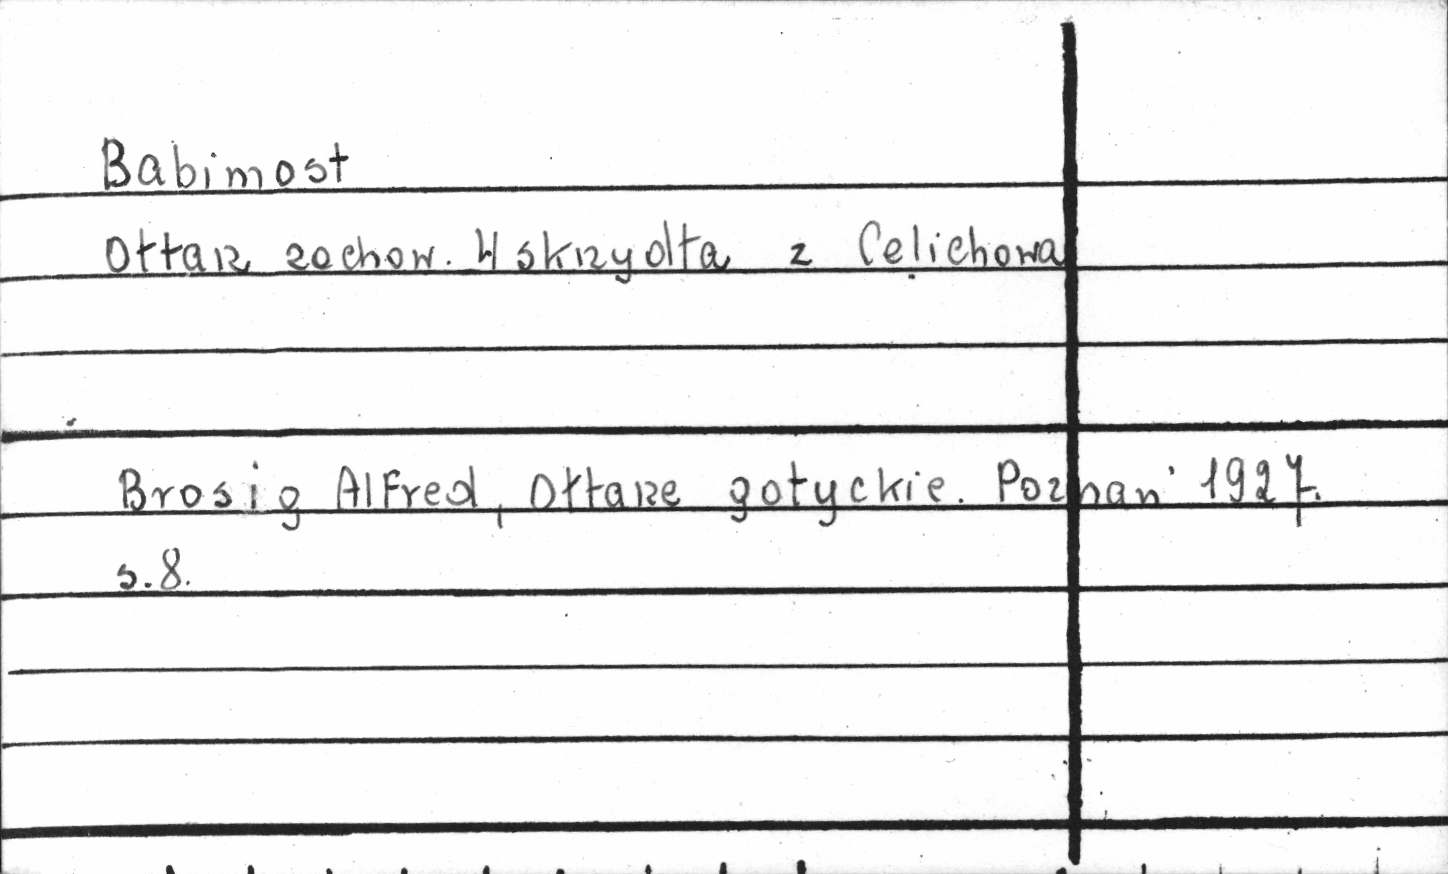 Babimost
Ołtarz zachow. 4 skrzydła z Celichowa
Brosig Alfred, Ołtarze gotyckie. Poznań 1927.
s.8.